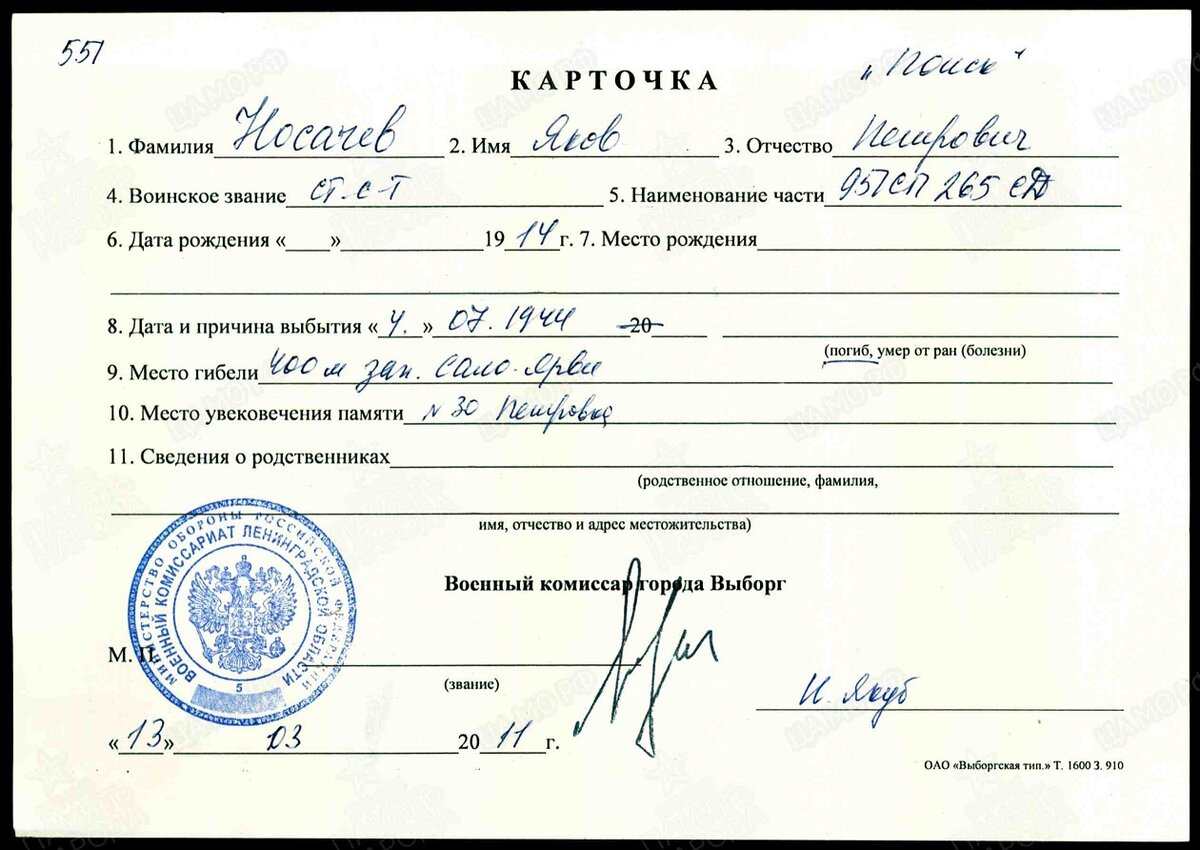 551
„Поиск"
КАРТОЧКА
1. Фамилия Носачев 2. Имя Яков 3. Отчество Петрович
4. Воинское звание ст. с-т 5. Наименование части 951 СП 265 СД
6. Дата рождения «    »     1914 г. 7. Место рождения
8. Дата и причина выбытия « 4. » 07. 1944 20
(погиб, умер от ран (болезни)
9. Место гибели 400 м зап. Сало-Ярви
10. Место увековечения памяти № 30 Петровка
11. Сведения о родственниках
(родственное отношение, фамилия,
имя, отчество и адрес местожительства)
МИНИСТЕРСТВО ОБОРОНЫ РОССИЙСКОЙ ФЕДЕРАЦИИ
ВОЕННЫЙ КОМИССАРИАТ ЛЕНИНГРАДСКОЙ ОБЛАСТИ
5
Военный комиссар города Выборг
М. П.
(звание)
Н. Якуб
« 13 » 03 2011 г.
ОАО «Выборгская тип.» Т. 1600 З. 910